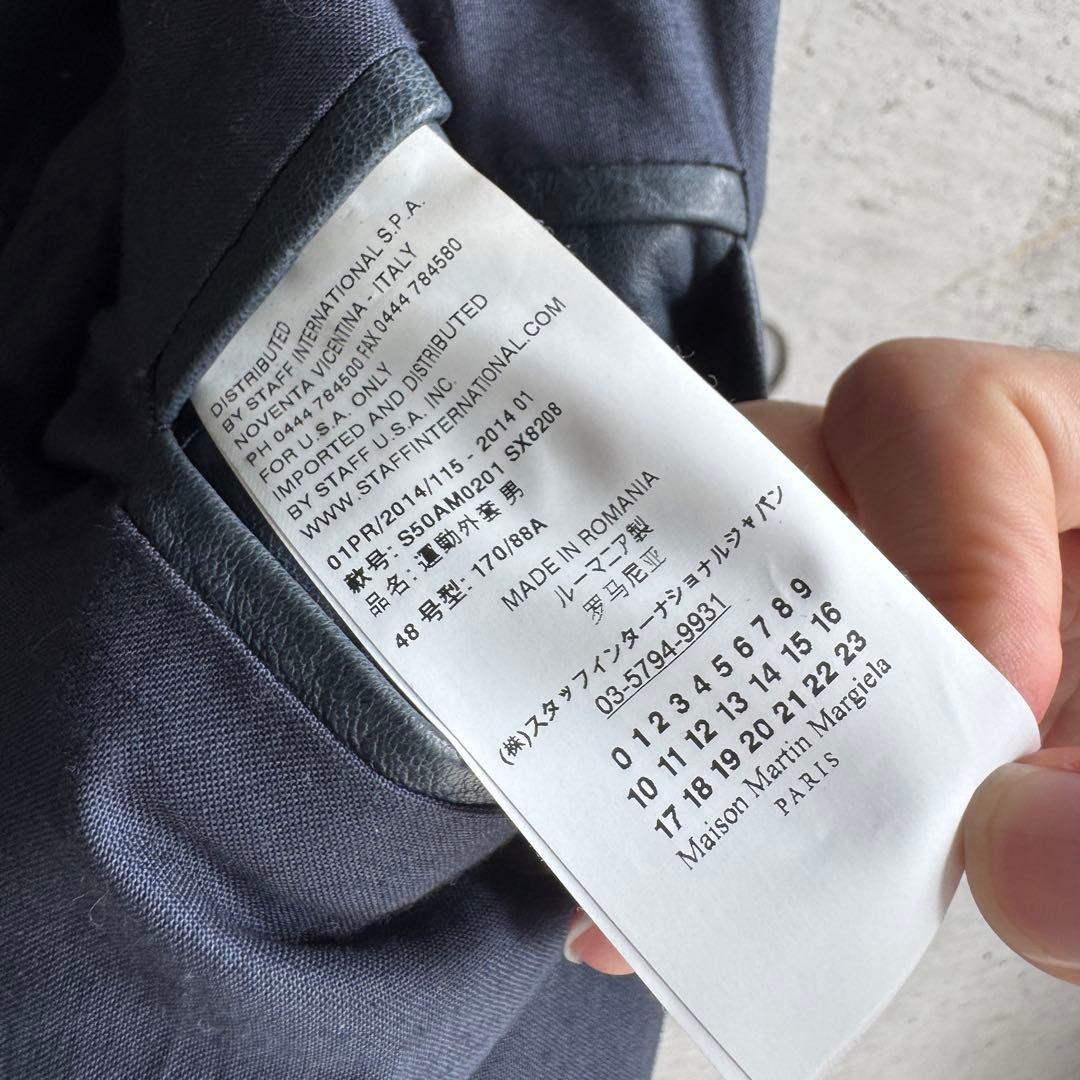 DISTRIBUTED
BY STAFF INTERNATIONAL S.P.A.
NOVENTA VICENTINA - ITALY
PH 0444 784500 FAX 0444 784580
FOR U.S.A. ONLY
IMPORTED AND DISTRIBUTED
BY STAFF U.S.A. INC.
WWW.STAFFINTERNATIONAL.COM
01PR/2014/115 - 2014 01
款号: S50AM0201 SX8208
品名: 運動外套 男
48 号型: 170/88A
MADE IN ROMANIA
ルーマニア製
罗马尼亚
(株)スタッフインターナショナルジャパン
03-5794-9931
0 1 2 3 4 5 6 7 8 9
10 11 12 13 14 15 16
17 18 19 20 21 22 23
Maison Martin Margiela
PARIS